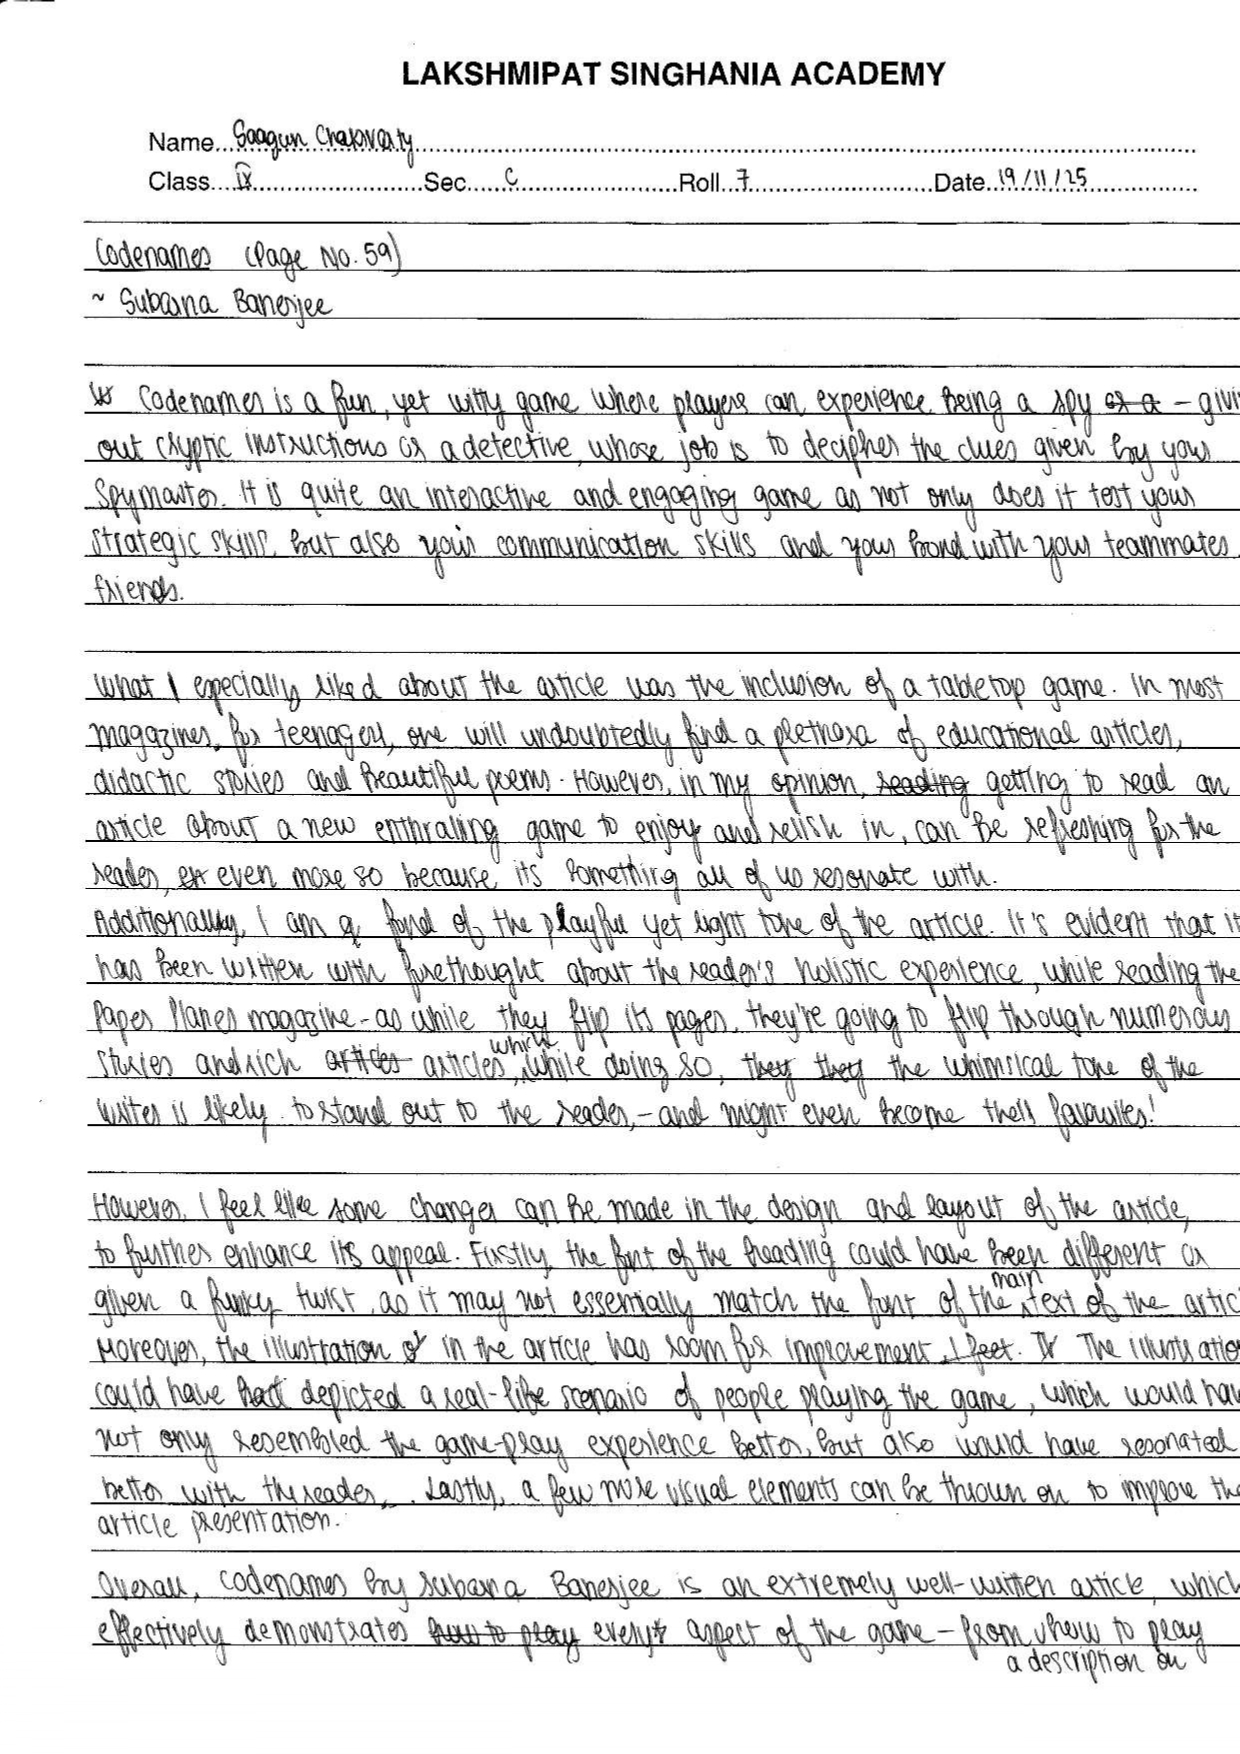 LAKSHMIPAT SINGHANIA ACADEMY
Name Saagun Chakravarty
Class IX Sec C Roll 7 Date 19/11/25
Codenames (Page No. 59)
~ Subarna Banerjee
Codenames is a fun, yet witty game where players can experience being a spy or a - givi
out cryptic instructions or a detective, whose job is to decipher the clues given by your
Spymaster. It is quite an interactive and engaging game as not only does it test your
strategic skills, but also your communication skills and your bond with your teammates
friends.
What I especially liked about the article was the inclusion of a tabletop game. In most
magazines, for teenagers, one will undoubtedly find a plethora of educational articles,
didactic stories and beautiful poems. However, in my opinion, reading getting to read an
article about a new enthralling game to enjoy and relish in, can be refreshing for the
reader, even more so because its something all of us resonate with.
Additionally, I am a fond of the playful yet light tone of the article. It's evident that it
has been written with forethought about the reader's holistic experience, while reading the
Paper Planes magazine - as while they flip its pages, they're going to flip through numerous
stories and rich articles articles, which while doing so, they they the whimsical tone of the
writer is likely to stand out to the reader, - and might even become their favourites!
However, I feel like some changes can be made in the design and layout of the article,
to further enhance its appeal. Firstly, the font of the heading could have been different or
given a funky twist, as it may not essentially match the font of the main text of the artic
Moreover, the illustration of in the article has room for improvement, I feel. The illustratio
could have had depicted a real-life scenario of people playing the game, which would hav
not only resembled the game-play experience better, but also would have resonated
better with the reader. Lastly, a few more visual elements can be thrown on to improve the
article presentation.
Overall, Codenames by Subarna Banerjee is an extremely well-written article, which
effectively demonstrates how to play every aspect of the game - from how to play
a description on